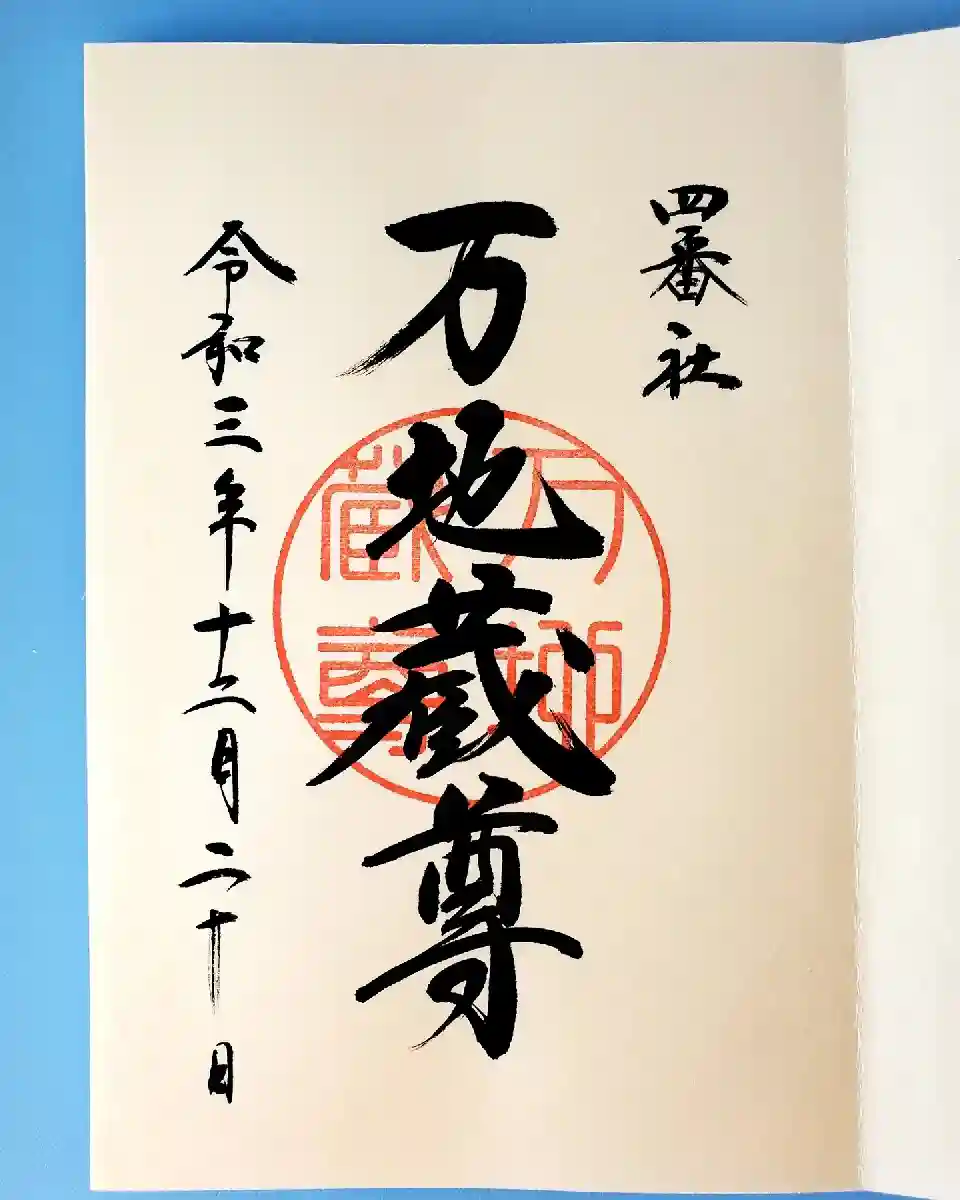 四番社
万地蔵尊
令和三年十二月二十日
万
蔵尊